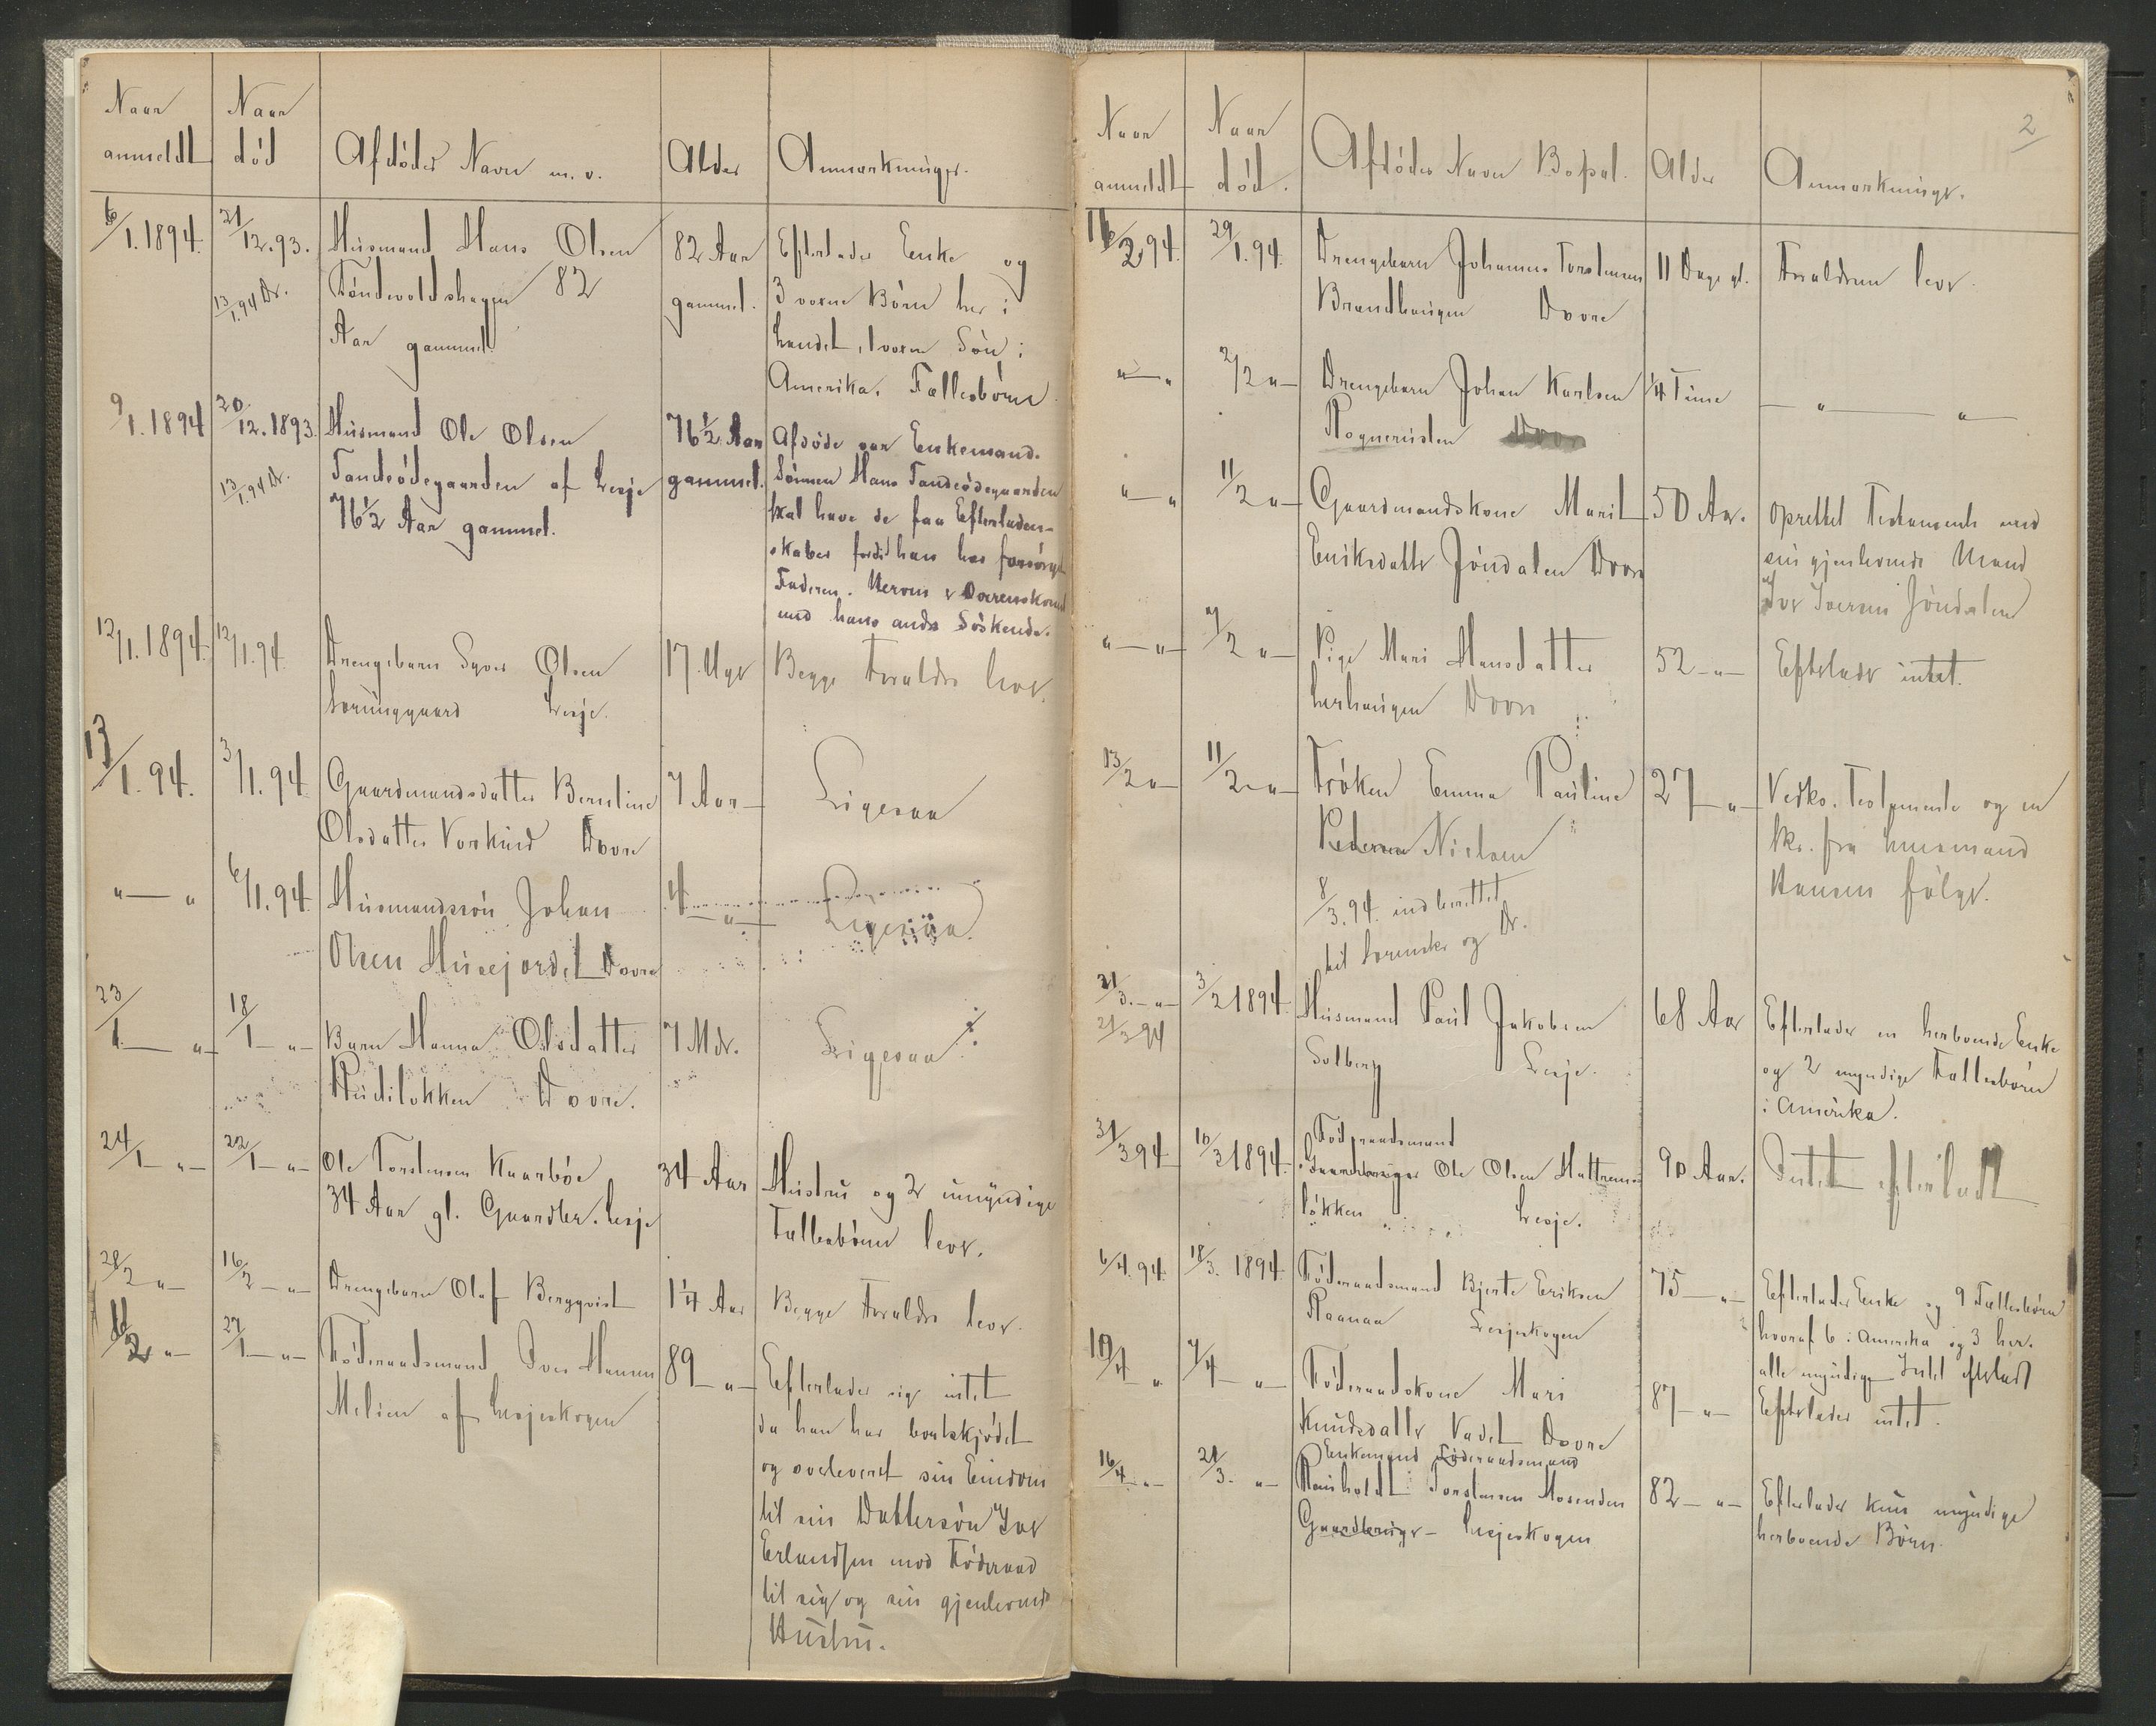 Naar anmeldt
Naar død
Afdødes Navn m. v.
Alder
Anmærkninger.
6/1. 1894.
21/12. 93.
13/1. 94 Dr.
Husmand Hans Olsen
82
Aar gammel
82 Aar
gammel.
Efterlader Enke og
3 voxne Børn her i
landet, 1 voxen Søn i
Amerika. Fællesbørn
9/1. 1894
20/12. 1893.
13/1. 94 Dr.
Husmand Ole Olsen
Tandeødegaarden af Lesje
76½ Aar gammel.
76½ Aar
gammel.
Afdøde var Enkemand.
Sønnen Hans Tandeødegaarden
skal have de faa Efterladen-
skaber fordi han har forsørget
Faderen. Herom er Overenskomst
med hans andre Søskende.
12/1. 1894.
12/1. 94.
Drengebarn Syver Olsen
Lesje.
17 Uger
Begge Forældre lever.
13/1. 94.
3/1. 94.
Gaardmandsdatter Berntine
Olsdatter Vorkind Dovre
7 Aar
Ligesaa
"—"
6/1. 94.
Husmandssøn Johan
Olsen Husejordet Dovre
4 — " —
Ligesaa
23/1 — " —
18/1 — " —
Barn Hanna Olsdatter
Rudiløkken Dovre.
7 Mdr.
Ligesaa
24/1 — " —
22/1 — " —
Ole Torstensen Kaarbøe
34 Aar gl. Gaardbr. Lesje
34 Aar
Hustru og 2 umyndige
Fællesbørn lever.
21/2 " —
16/2 — " —
Drengebarn Olaf Bergqvist
1¼ Aar
Begge Forældre lever.
2 " —
27/1 — " —
Føderaadsmand Iver Hansen
Melien af Lesjeskogen
89 — " —
Efterlader sig intet
da han har bortskjødet
og overleveret sin Eiendom
til sin Dattersøn Iver
Erlandsen mod Føderaad
til sig og sin gjenlevende
Hustru.
2
Naar anmeldt
Naar død.
Afdødes Navn Bopæl.
Alder
Anmærkninger.
2. 94.
29/1. 94.
Drengebarn Johannes Torstensen
Brandhaugen Dovre
11 Dage gl.
Forældrene lever.
" — "
2/2 " —
Drengebarn Johan Karlsen
Rognerusten Dovre
¼ Time
— " — " —
" — "
11/2 " —
Gaardmandskone Marit
Eriksdatter Jøndalen Dovre
50 Aar.
Oprettet Testamente med
sin gjenlevende Mand
Iver Iversen Jøndalen
" — " —
7/2 " —
Pige Mari Hansdatter
Dovre
52 — " —
Efterlader intet.
13/2 " —
11/2 — " —
Frøken Emma Pauline
Pedersen Nielsen
8/3. 94. indberettet
til Sorensk. og Dr.
27 — " —
Vedko. Testamente og en
Sk. fra Lensmand
Hansen følger.
21/3. — " —
21/3 94
3/2 1894.
Husmand Paul Jakobsen
Solberg Lesje.
68 Aar
Efterlader en herboende Enke
og 2 myndige Fællesbørn
i Amerika.
31/3 94
10/3 1894.
Føderaadsmand
Gaardbruger Ole Olsen Hattrems-
løkken Lesje.
90 Aar.
Intet efterladt
6/4. 94.
18/3. 1894
Føderaadsmand Bjerte Eriksen
Raanaa Lesjeskogen
75 — " —
Efterlader Enke og 9 Fællesbørn
hvoraf 6 i Amerika og 3 her.
alle myndige Intet efterladt
10/4 "
7/4 — " —
Føderaadskone Mari
Knudsdatter Vadet Dovre
87 — " —
Efterlader intet.
16/4 — " —
21/3. " —
Enkemand Føderaadsmand
Reinholdt Torstensen Mosenden
Gaardbruger — Lesjeskogen
82 — " —
Efterlader kun myndige
herboende Børn.